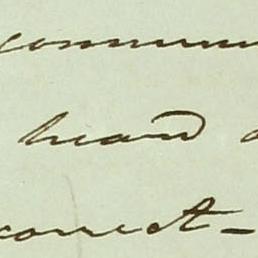 commun
heard
correct-